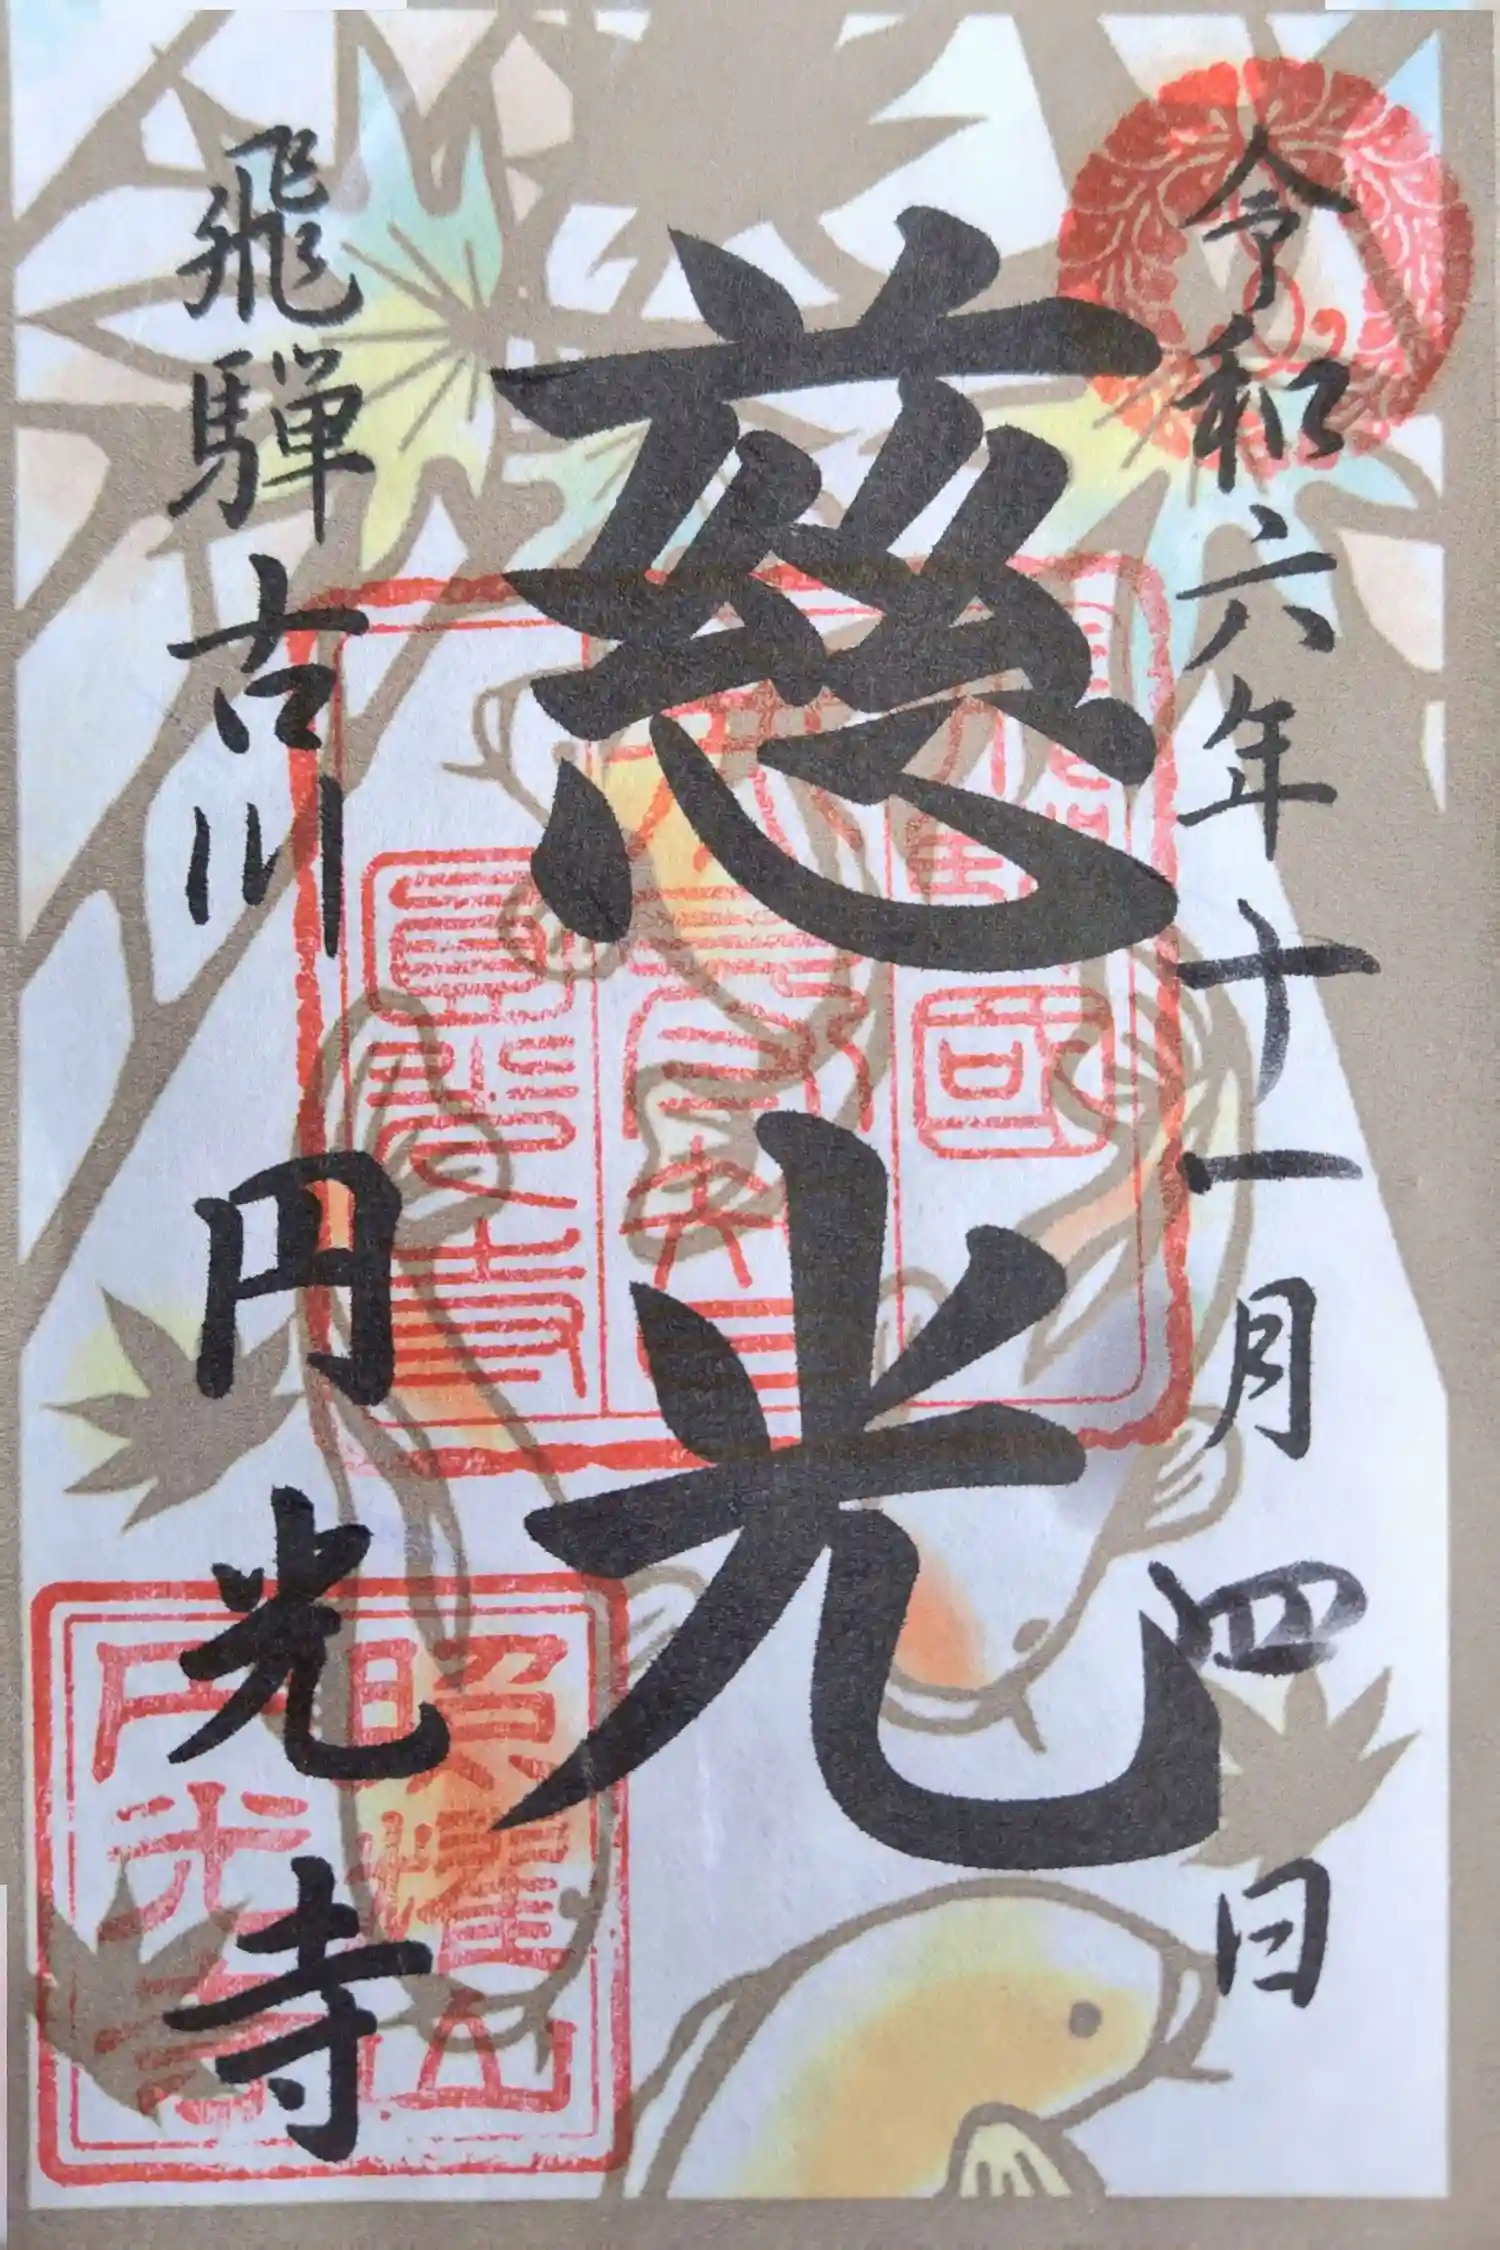 令和六年十一月四日
慈光
飛騨古川
円光寺
照耀山
円光寺